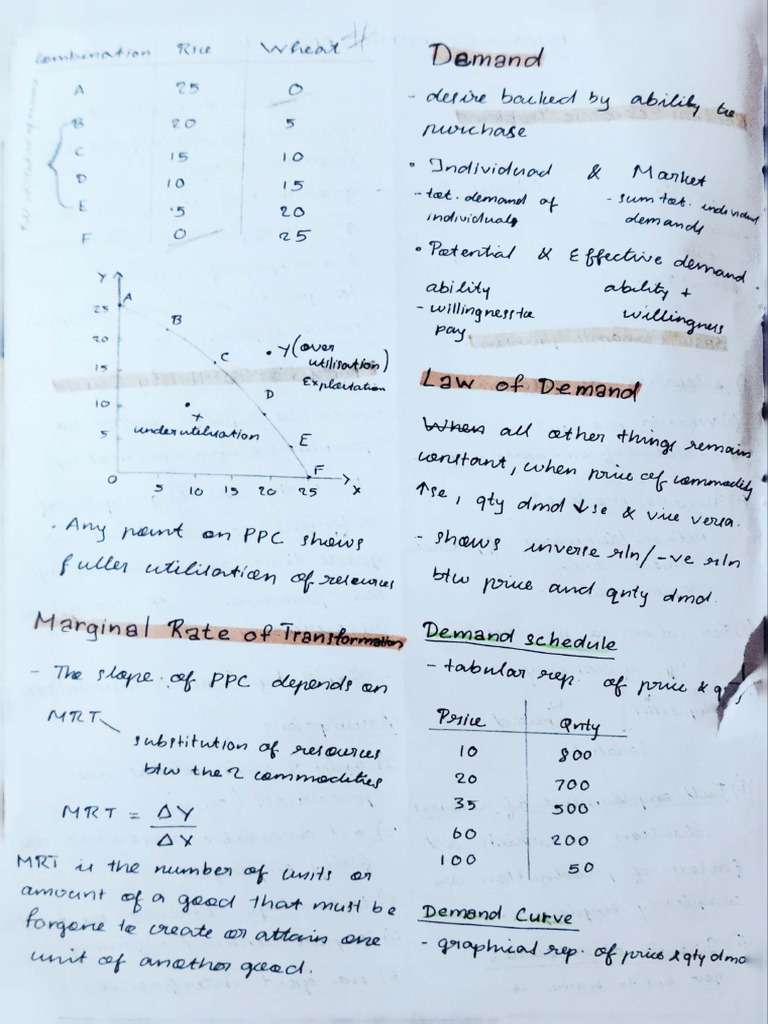 Combination Rice Wheat #
A 25 0
B 20 5
C 15 10
D 10 15
E 5 20
F 0 25
Y
A
25
B
20
C
Y (over
utilisation)
Explortation
15
D
10
x
underutilisation
5
E
F
0 5 10 15 20 25 X
. Any point on PPC shows
fuller utilisation of resources
Marginal Rate of Transformation
- The slope of PPC depends on
MRT
substitution of resources
btw the 2 commodities
MRT = ΔY
ΔX
MRT is the number of units or
amount of a good that must be
forgone to create or attain one
unit of another good.
Demand
- desire backed by ability to
purchase
• Individual & Market
- tot. demand of - sum tot. individual
individuals demands
• Potential & Effective demand.
ability ability +
- willingness to willingness
pay
Law of Demand
When all other things remain
constant, when price of commodity
↑se, qty dmd ↓se & vice versa.
- shows inverse rln/-ve rln
btw price and qnty dmd.
Demand schedule
- tabular rep. of price &
Price Qnty
10 800
20 700
35 500
60 200
100 50
Demand Curve
- graphical rep. of price & qty dmd